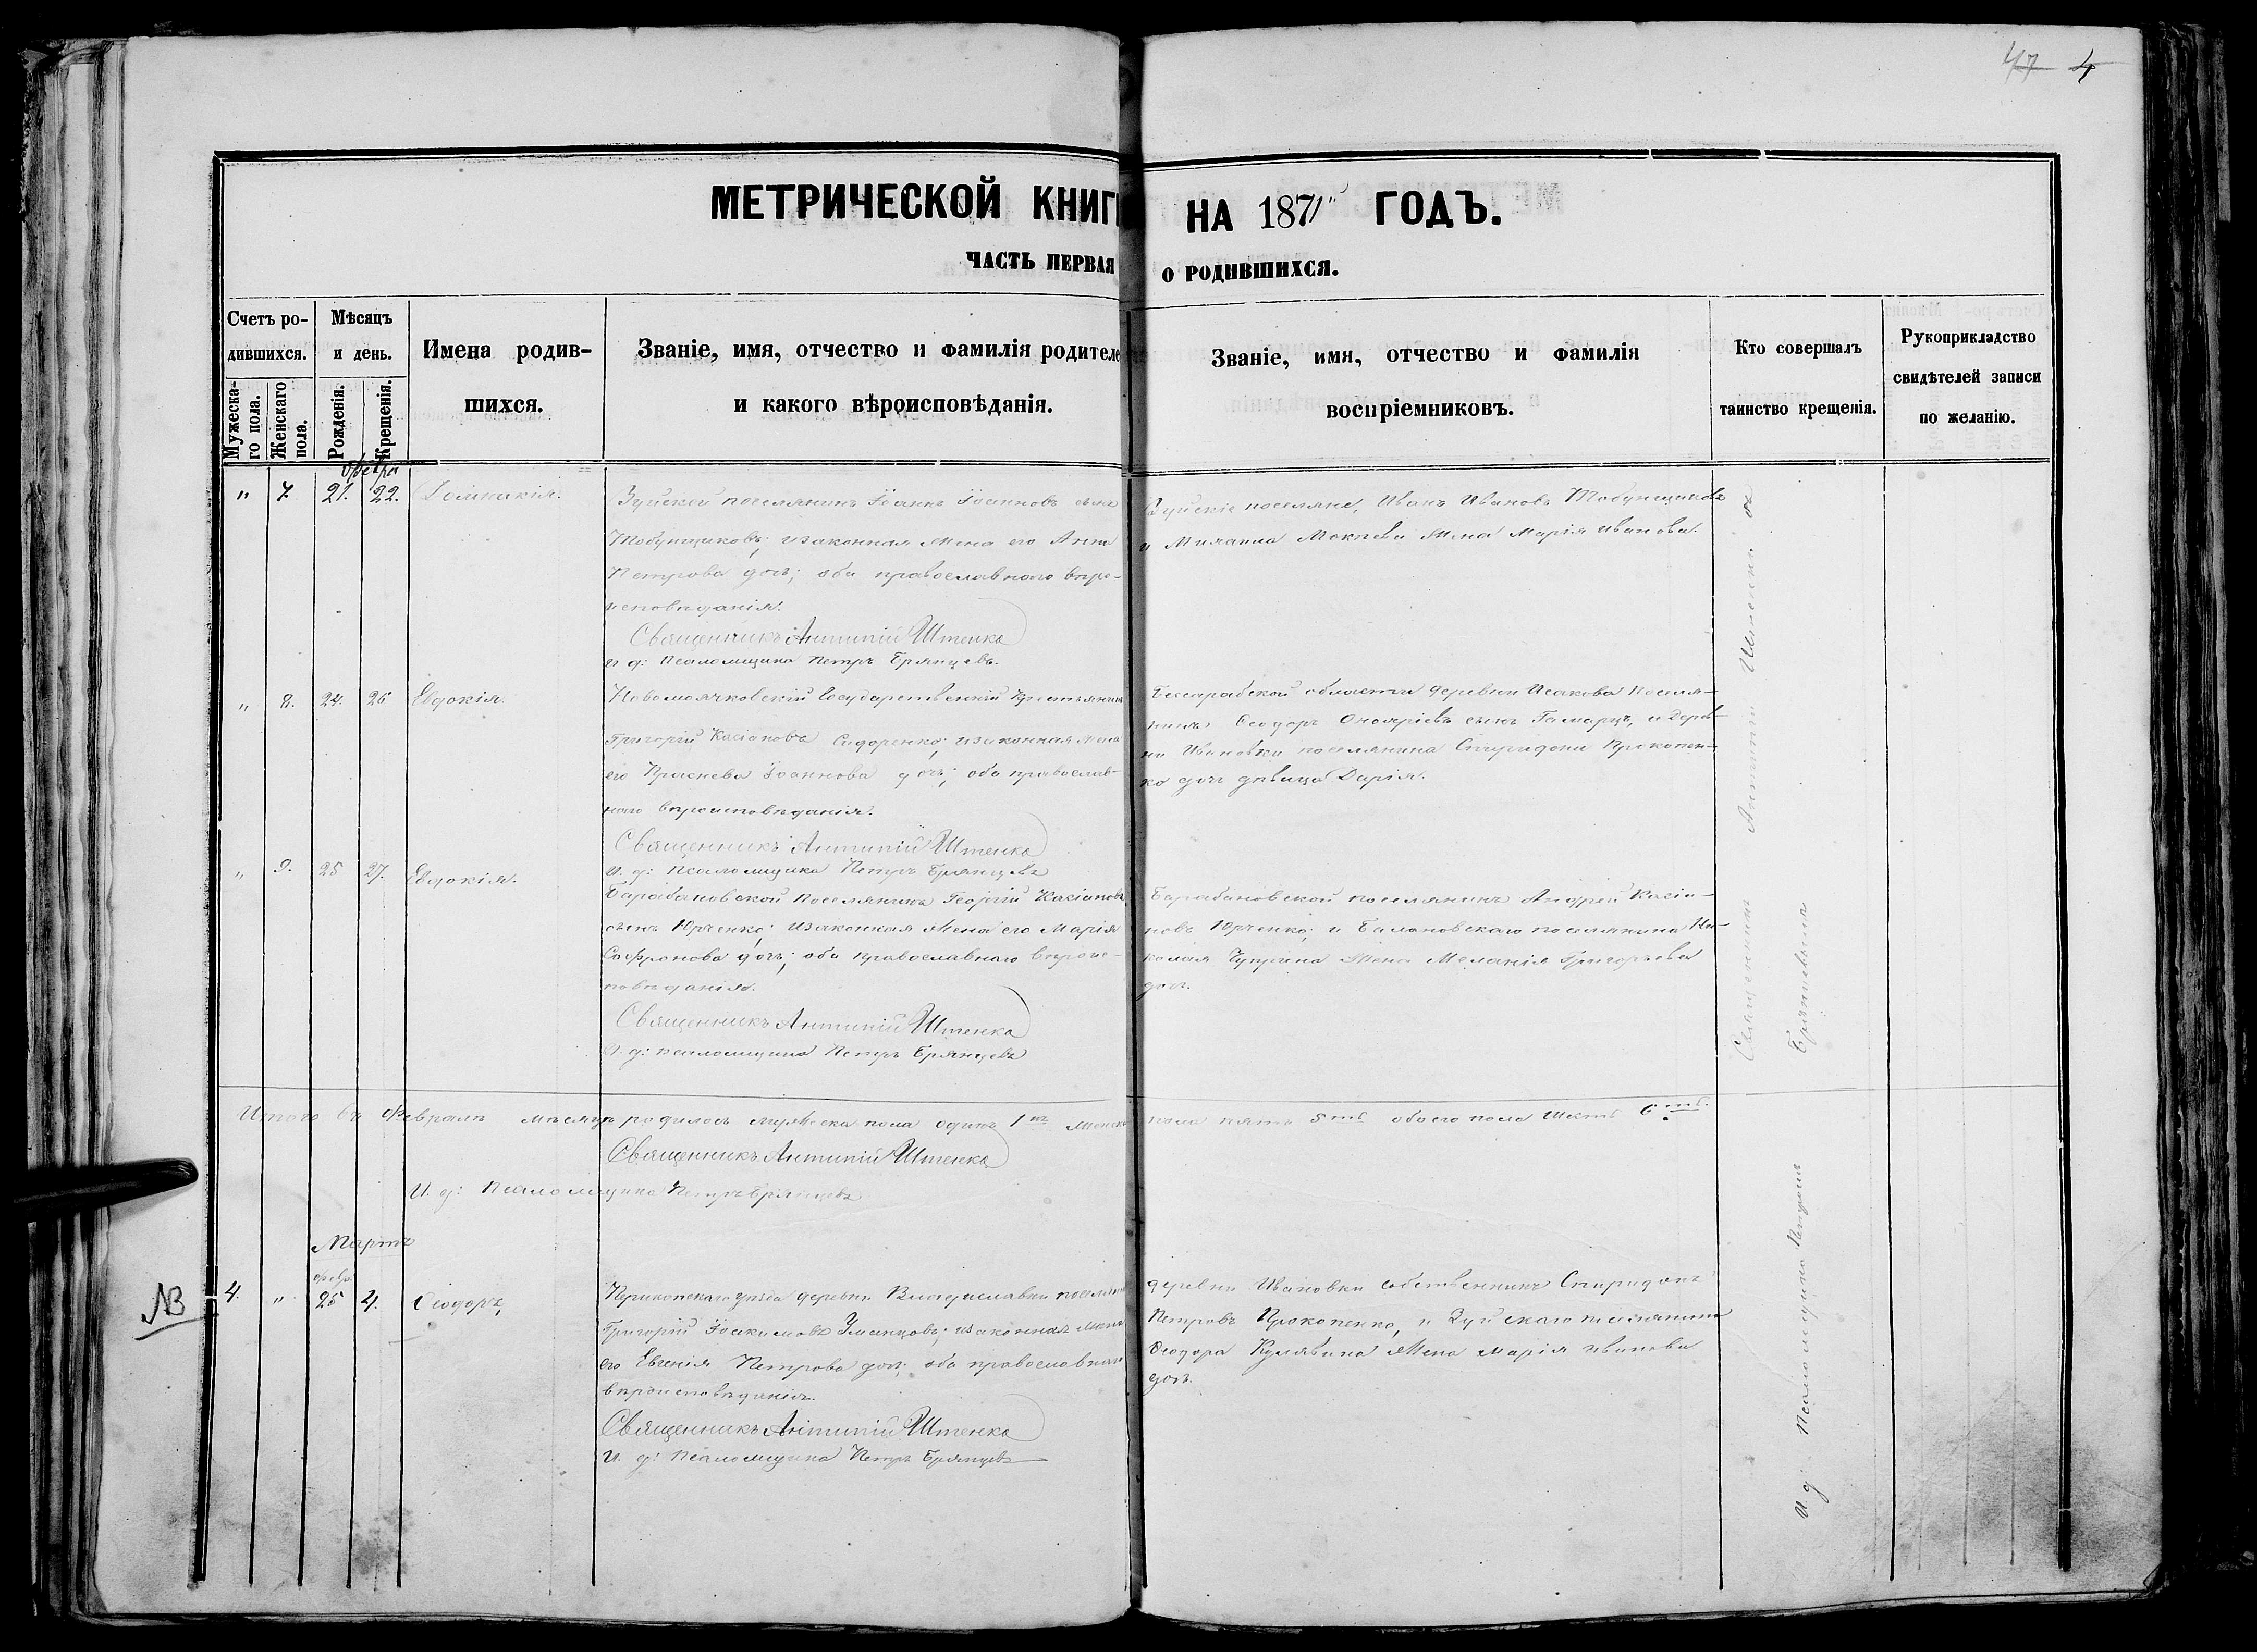 47 4
МЕТРИЧЕСКОЙ КНИГ НА 1871 ГОДЪ.
ЧАСТЬ ПЕРВАЯ О РОДИВШИХСЯ.
Счетъ ро-
дившихся.
Мужеска-
го пола.
Женскаго
пола.
Мѣсяцъ
и день.
Рожденія.
Крещенія.
Имена родив-
шихся.
Званіе, имя, отчество и фамилія родителе
и какого вѣроисповѣданія.
Званіе, имя, отчество и фамилія
воспріемниковъ.
Кто совершалъ
таинство крещенія.
Рукоприкладство
свидѣтелей записи
по желанію.
февра
" 7. 21. 22. Домникія.
Зуйской поселянинъ Іоаннъ Іоанновъ сынъ
Табунщиковъ; и законная жена его Анна
Петрова дочь; оба православнаго вѣро-
исповѣданія.
Священникъ Антипій Штенко
И. д: псаломщика Петръ Брянцевъ.
Зуйскіе поселяне, Иванъ Ивановъ Табунщиковъ
и Михаила Мокнева жена Марія Иванова.
" 8. 24. 26 Евдокія.
государственній крестьянинъ
Григорій Касіановъ Сидоренко; и законная жена
его Іоаннова дочь; оба православ-
наго вѣроисповѣданія.
Священникъ Антипій Штенко
И. д: псаломщика Петръ Брянцевъ
Бессарабской области деревни Исакова поселя-
нинъ Ѳеодоръ сынъ и дерев-
ни Ивановки поселянина Спиридона Прокопен-
ко дочь дѣвица Дарія.
" 9. 25 27. Евдокія.
Барабановской поселянинъ Георгій Касіановъ
сынъ Юрченко; и законная жена его Марія
Софронова дочь; оба православнаго вѣроис-
повѣданія.
Священникъ Антипій Штенко
И. д: псаломщика Петръ Брянцевъ
Барабановской поселянинъ Андрей Касіа-
новъ Юрченко; и поселянина Ни-
колая жена Меланія Григорьева
доч.
Итого въ Февралѣ мѣсяцѣ родилось мужеска пола одинъ 1нъ женск пола пять 5ть обоего пола шесть 6ть.
Священникъ Антипій Штенко
И. д: Псаломщика Петръ Брянцевъ
Мартъ
NB 4. " февр. 25 4. Ѳеодоръ,
Перекопскаго уѣзда деревни Владиславки поселян
Григорій Іоакимовъ и законная жена
его Евгенія Петрова доч; оба православнаго
вѣроисповѣданія.
Священникъ Антипій Штенко
И. д: Псаломщика Петръ Брянцевъ
деревни Ивановки собственникъ Спиридонъ
Петровъ Прокопенко, и Зуйскаго поселянина
Ѳеодора жена Марія Иванова
доч.
Священникъ Антипій Штенко съ
И. д: Псаломщика Петромъ
Брянцевымъ